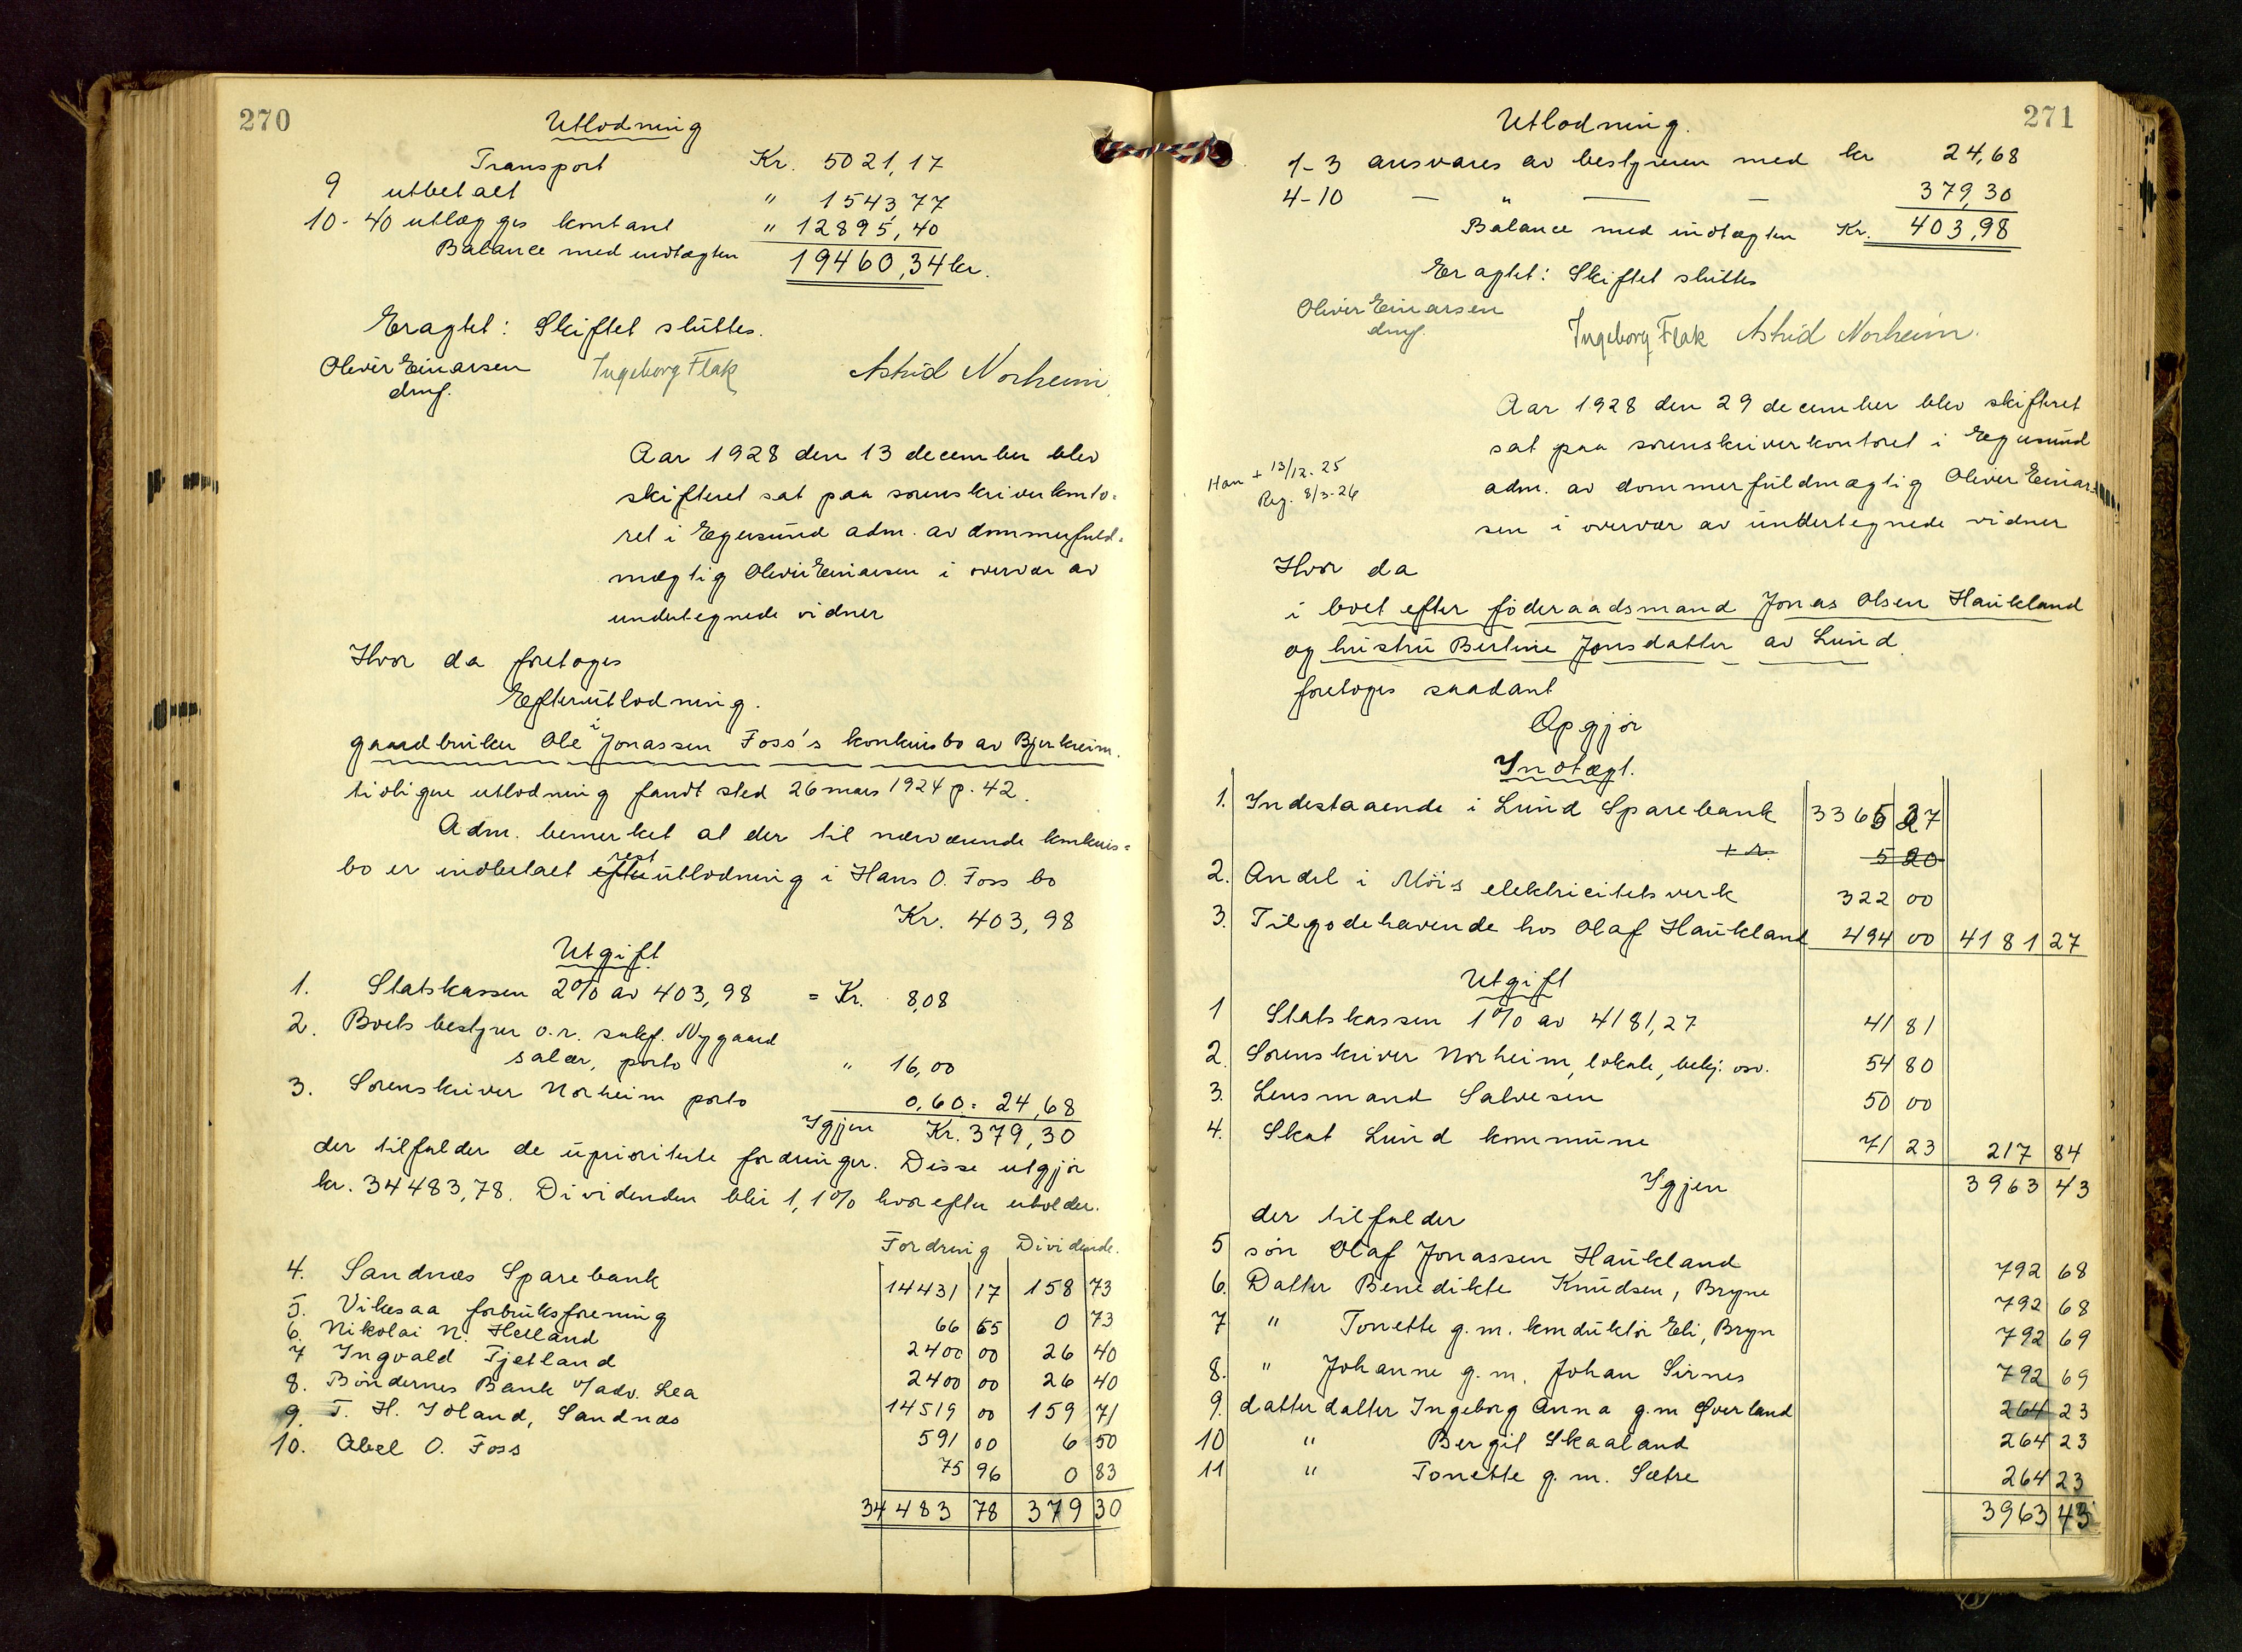 270
Utlodning
Transport Kr. 5021,17
9 utbetalt " 1543,77
10-40 utlægges kontant " 12895,40
Balance med indtægten 19460,34 kr.
Eragtet: Skiftet sluttes.
Oliver Einarsen Ingeborg Flak Astrid Norheim
dmf.
Aar 1928 den 13 december blev
skifteret sat paa sorenskriverkonto=
ret i Egersund adm. av dommerfuld=
mægtig Oliver Einarsen i overvær av
undertegnede vidner
Hvor da foretoges
Efterutlodning.
i
gaardbruker Ole Jonassen Foss's konkursbo av Bjerkreim.
tidligere utlodning fandt sted 26 mars 1924 p. 42.
Adm. bemerket at der til nærværende konkurs=
rest
bo er indbetalt efterutlodning i Hans O. Foss bo
Kr. 403,98
Utgift
1. Statskassen 2% av 403,98 = Kr. 8,08
2. Boets bestyrer o.r. sakf. Nygaard
salær, porto " 16,00
3. Sorenskriver Norheim porto 0,60 = 24,68
Igjen Kr. 379,30
der tilfalder de uprioriterte fordringer. Disse utgjør
kr. 34483,78. Dividenden blir 1,1% hvorefter utholder.
Fordring Dividende.
4. Sandnæs Sparebank 14431 17 158 73
5. Vikesaa forbruksforening 66 65 0 73
6. Nikolai N. Helland 2400 00 26 40
7 Ingvald Tjetland 2400 00 26 40
8. Bøndernes Bank v/adv. Lea 14519 00 159 71
9. T. H. Idland, Sandnæs 591 00 6 50
10. Abel O. Foss 75 96 0 83
34 483 78 379 30
271
Utlodning.
1-3 ansvares av bestyreren med kr 24,68
4-10 — " — — 379,30
Balance med indtægten Kr. 403,98
Eragtet: Skiftet sluttes
Oliver Einarsen
dmf.
Ingeborg Flak Astrid Norheim.
Aar 1928 den 29 december blev skifteret
sat paa sorenskriverkontoret i Egersund
Han + 13/12. 25
Reg. 8/3-26
adm. av dommerfuldmægtig Oliver Einar=
sen i overvær av undertegnede vidner
Hvor da
i boet efter føderaadsmand Jonas Olsen Haukland
og hustru Berline Jonsdatter av Lund
foretoges saadant
Opgjør
Indtægt.
1. Indestaaende i Lund Sparebank 3365 27
+ r. 5 20
2. Andel i Moi's elektricitetsverk 322 00
3. Tilgodehavende hos Olaf Haukland 494 00 4181 27
Utgift
1 Statskassen 1% av 4181,27 41 81
2. Sorenskriver Norheim, lokale, bekj. osv. 54 80
3. Lensmand Salvesen 50 00
4. Skat Lund kommune 71 23 217 84
Igjen 3963 43
der tilfalder
5 søn Olaf Jonassen Haukland 792 68
6. Datter Benedikte Knudsen, Bryne 792 68
7 " Tonette g. m. konduktør Eli, Bryn 792 69
8. " Johanne g. m. Johan Sirnes 792 69
9. datterdatter Ingeborg Anna g.m Øverland 264 23
10 " Bergit Skaaland 264 23
11 " Tonette g. m. Sætre 264 23
3963 43